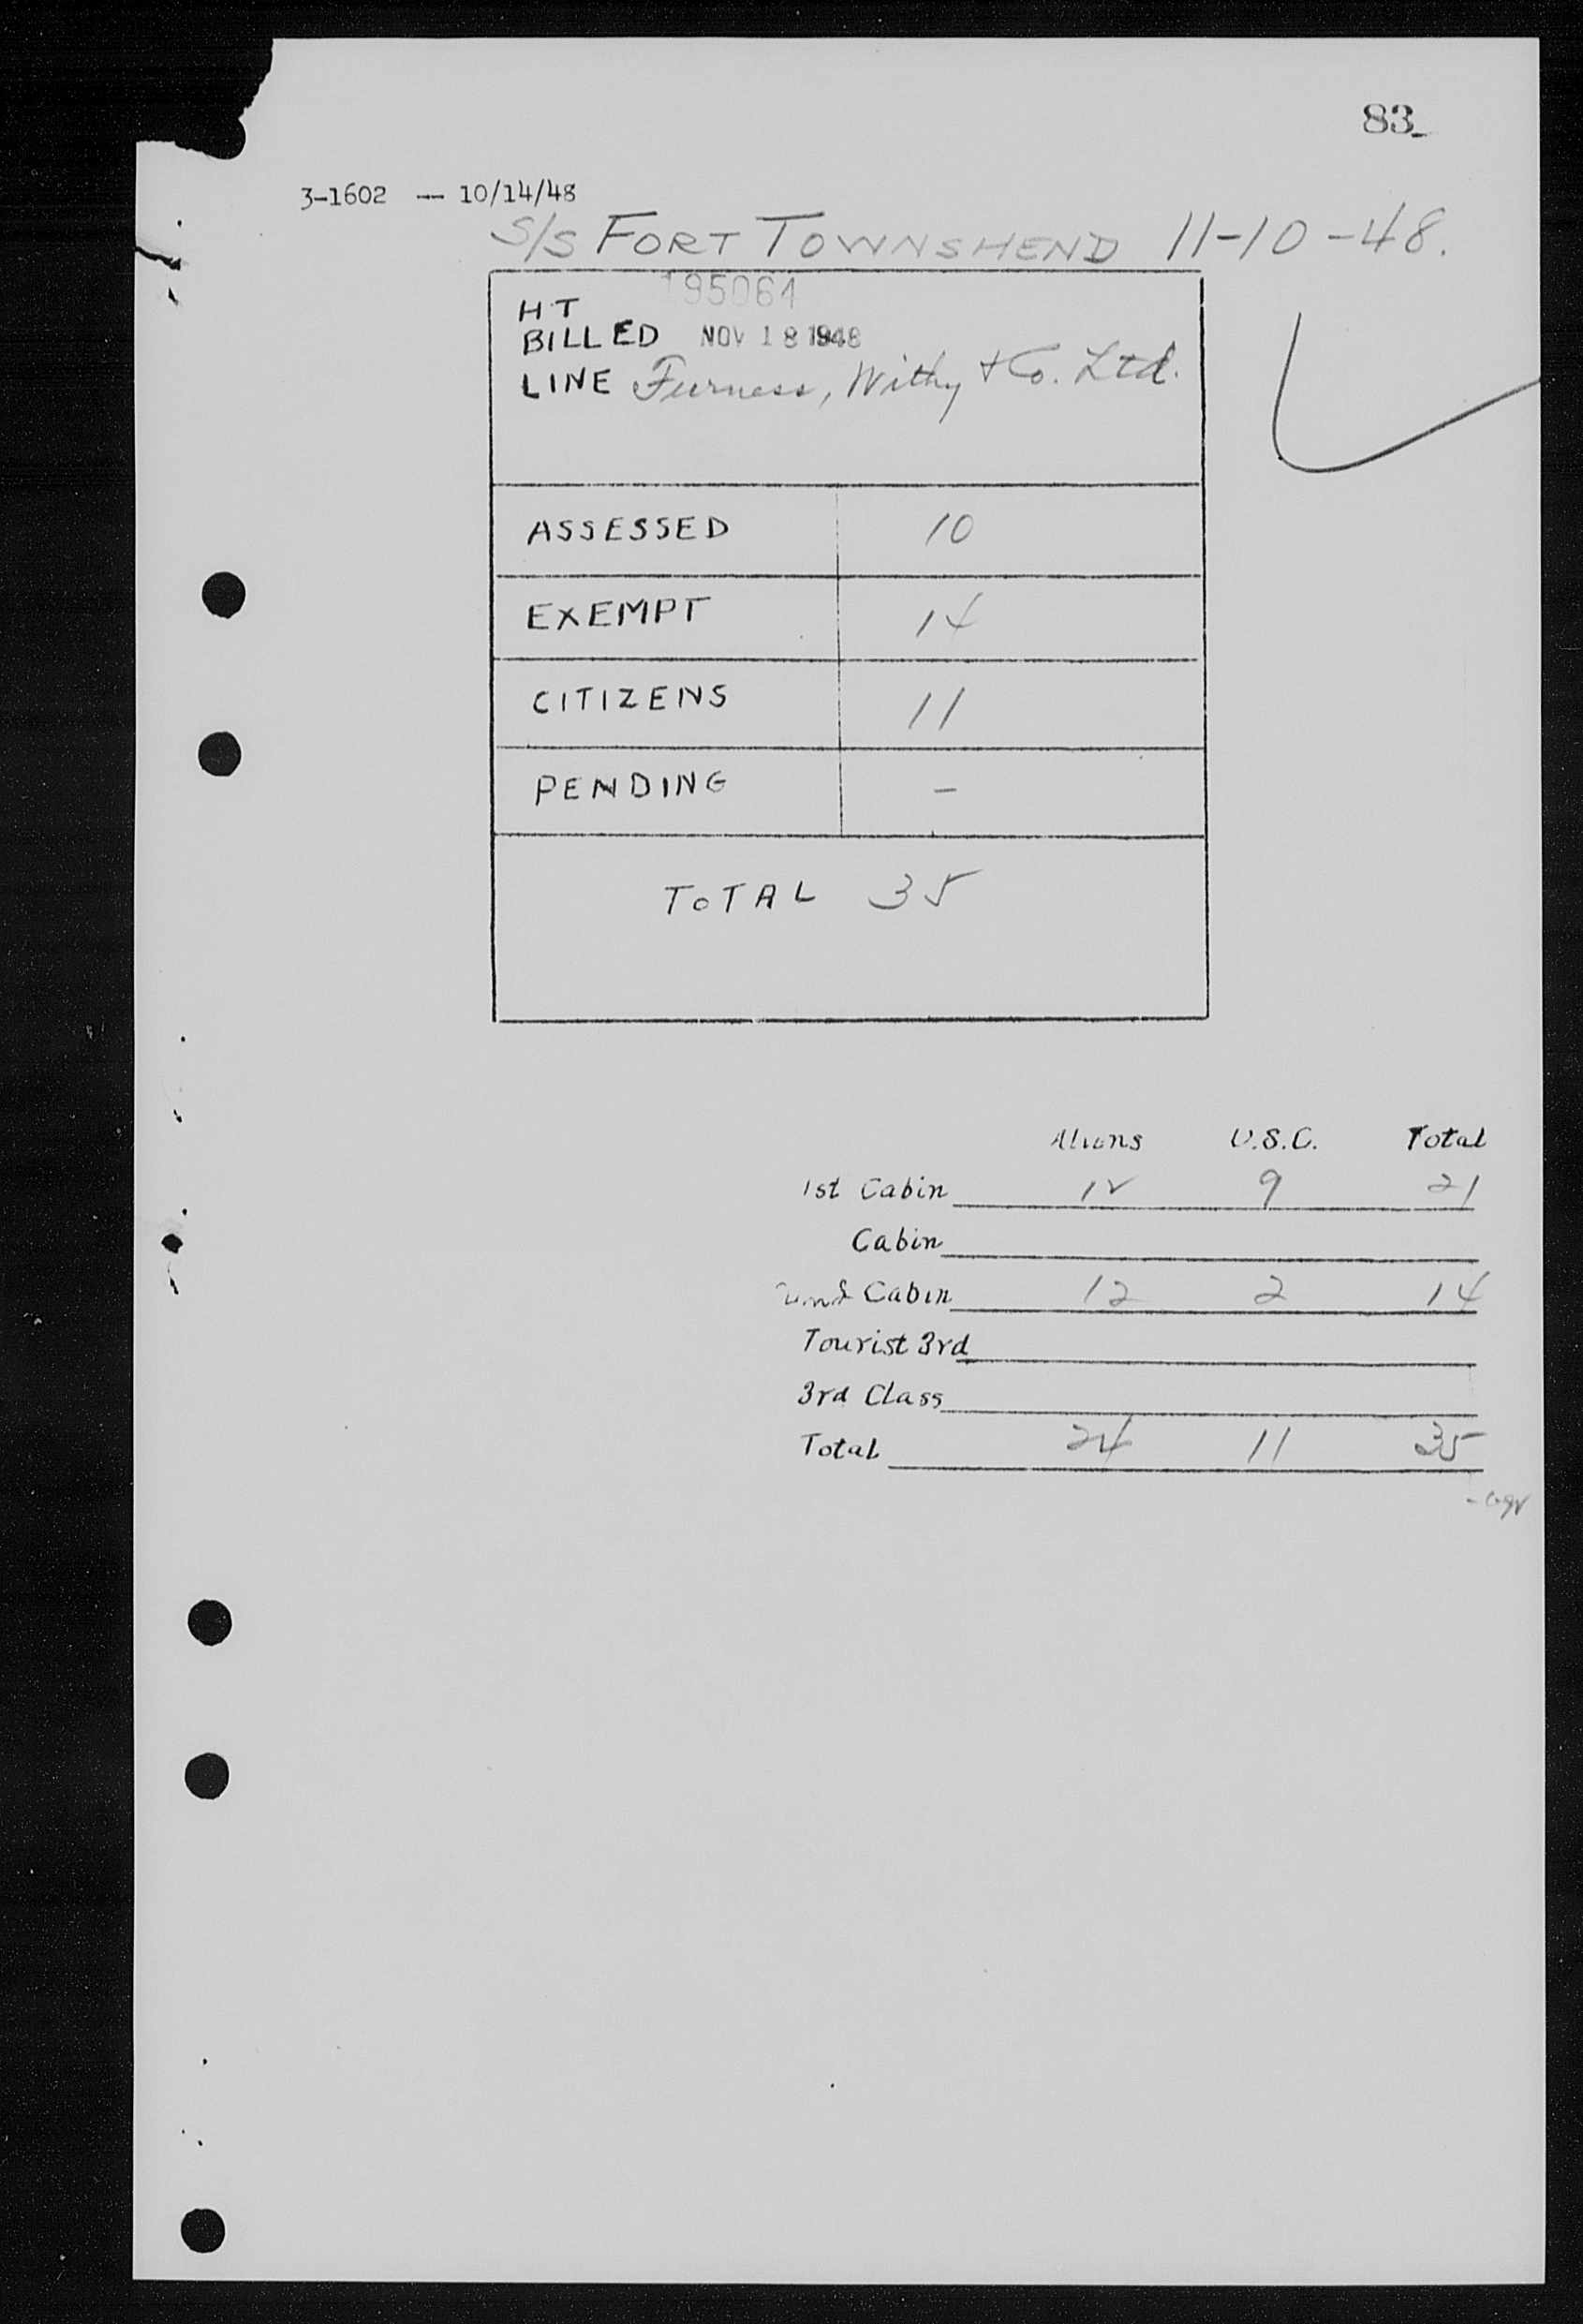 83
3-1602 — 10/14/48
S/S FORT TOWNSHEND 11-10-48.
195061
HT
BILLED NOV 18 1948
LINE Furness, Withy & Co. Ltd.
ASSESSED 10
EXEMPT 14
CITIZENS 11
PENDING –
TOTAL 35
Aliens U.S.C. Total
1st Cabin 12 9 21
Cabin
Cabin 12 2 14
Tourist 3rd
3rd Class
Total 24 11 35